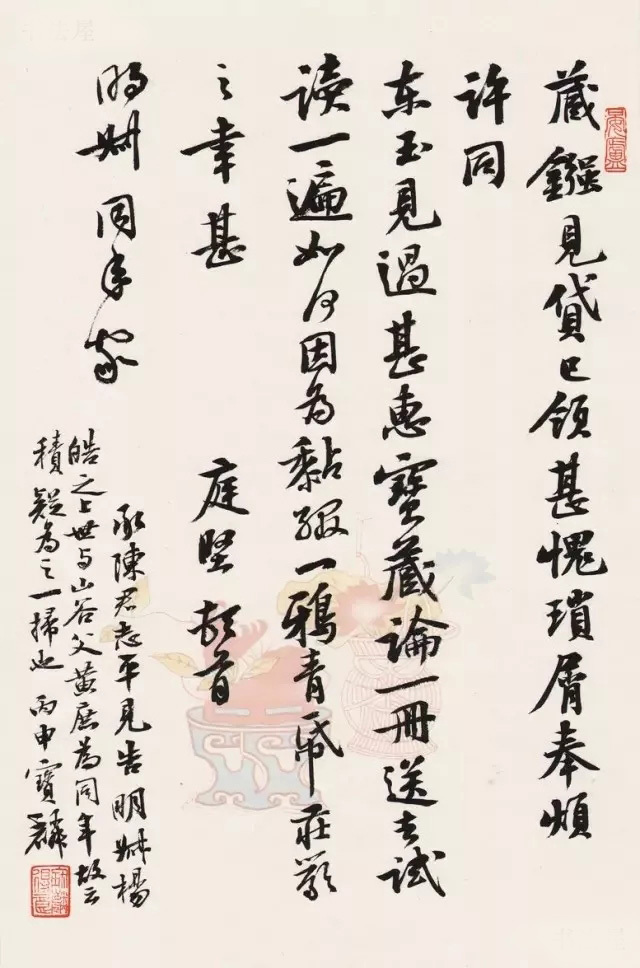 藏鏹見貸已領甚愧瑣屑奉煩
许同
东玉見過甚惠寶藏論一冊送去試
读一遍如何因为黏缀一鴉青帋莊嚴
之幸甚 庭堅頓首
明叔同年家
承陳君志平見告明叔楊
皓之上世与山谷父黄庶為同年故云
積疑為之一掃也 丙申寶麟